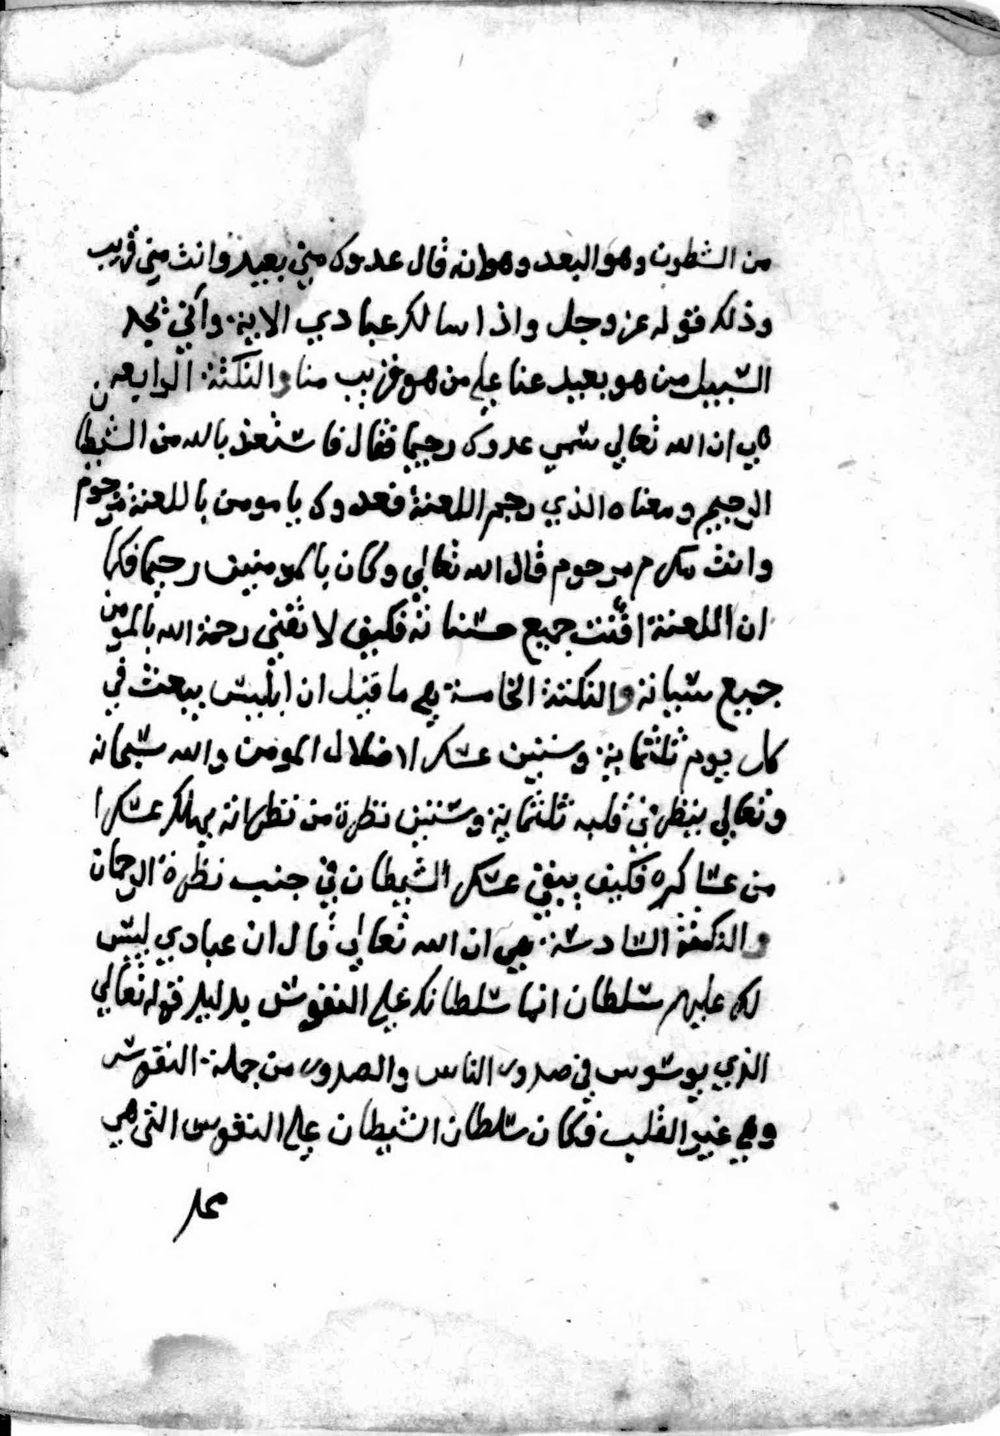 من الشطون وهو البعد وهو انه قال عدوك مني بعيد وانت مني قريب
وذلك قوله عز وجل واذا سالك عبادي الاية واني يجد
السبيل من هو بعيد عنا علي من هو قريب منا والنكتة الرابعه
هي ان الله تعالي سمي عدوك رجيما فقال فاستعذ بالله من الشيطان
الرجيم ومعناه الذي رجم اللعنة فعدوك يا مومن باللعنة مرجوم
وانت مكرم مرحوم قال الله تعالي وكان بالمومنين رحيما فكما
ان اللعنة افنت جميع حسناته فكيف لا تفني رحمة الله بالمومن
جميع سياته والنكتة الخامسة هي ما قيل ان ابليس يبعث في
كل يوم ثلثماية وستين عسكرا لاضلال المومن والله سبحانه
وتعالي ينظر في قلبه ثلثماية وستين نظرة من نظراته يهلك عسكرا
من عساكره فكيف يبقي عسكر الشيطان في جنب نظرة الرحمان
والنكتة السادسة هي ان الله تعالي قال ان عبادي ليس
لك عليهم سلطان انما سلطانك علي النفوس بدليل قوله تعالي
الذي يوسوس في صدور الناس والصدور من جملة النفوس
وهي غير القلب فكان سلطان الشيطان علي النفوس التي هي
محل